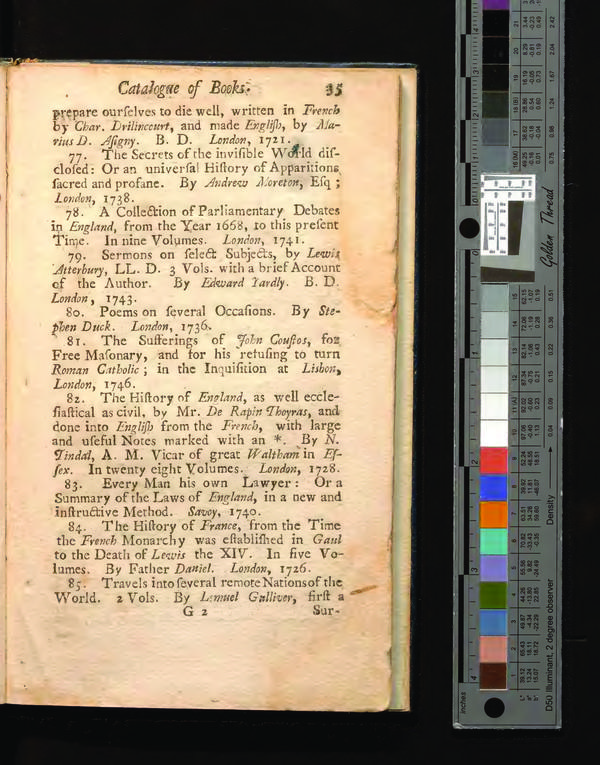 Catalogue of Books. 35
prepare ourſelves to die well, written in French
by Char. Drilincourt, and made Engliſh, by Ma-
rius D. Aſſigny. B. D. London, 1721.
77. The Secrets of the inviſible World diſ-
cloſed: Or an univerſal Hiſtory of Apparitions
ſacred and profane. By Andrew Moreton, Eſq;
London, 1738.
78. A Collection of Parliamentary Debates
in England, from the Year 1668, to this preſent
Time. In nine Volumes. London, 1741.
79. Sermons on ſelect Subjects, by Lewis
Atterbury, LL. D. 3 Vols. with a brief Account
of the Author. By Edward Yardly. B. D.
London, 1743.
80. Poems on ſeveral Occaſions. By Ste-
phen Duck. London, 1736.
81. The Sufferings of John Couſtos, for
Free Maſonary, and for his refuſing to turn
Roman Catholic; in the Inquiſition at Lisbon,
London, 1746.
82. The Hiſtory of England, as well eccle-
ſiaſtical as civil, by Mr. De Rapin Thoyras, and
done into Engliſh from the French, with large
and uſeful Notes marked with an *. By N.
Tindal, A. M. Vicar of great Waltham in Eſ-
ſex. In twenty eight Volumes. London, 1728.
83. Every Man his own Lawyer: Or a
Summary of the Laws of England, in a new and
inſtructive Method. Savoy, 1740.
84. The Hiſtory of France, from the Time
the French Monarchy was eſtabliſhed in Gaul
to the Death of Lewis the XIV. In five Vo-
lumes. By Father Daniel. London, 1726.
85. Travels into ſeveral remote Nations of the
World. 2 Vols. By Lemuel Gulliver, firſt a
G 2 Sur-
Golden Thread
Density
D50 Illuminant, 2 degree observer
inches